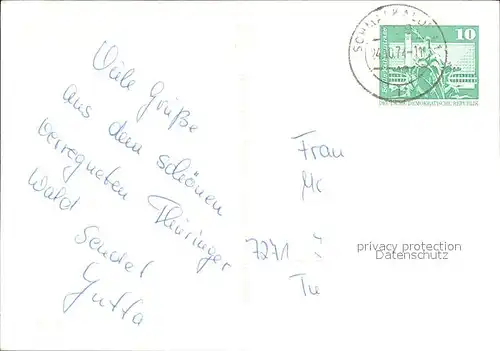 Viele Grüße
aus dem schönen
verregneten Thüringer
Wald
Sendet
Jutta
10
DEUTSCHE DEMOKRATISCHE REPUBLIK
Frau
7271
privacy protection
Datenschutz